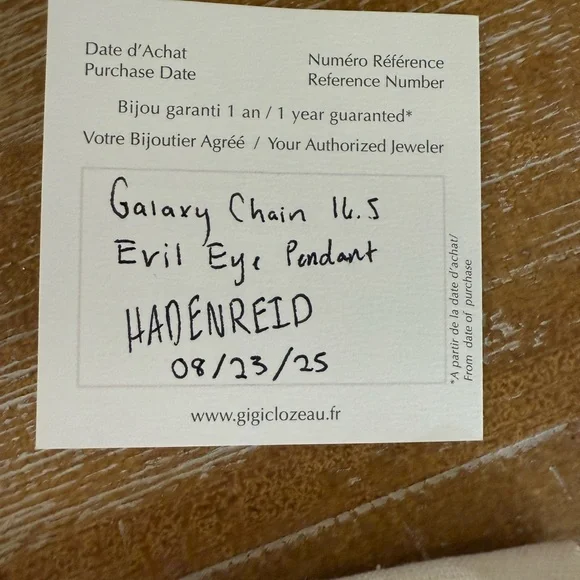 Date d'Achat
Purchase Date
Numéro Référence
Reference Number
Bijou garanti 1 an / 1 year guaranteed*
Votre Bijoutier Agréé / Your Authorized Jeweler
Galaxy Chain 16.5
Evil Eye Pendant
HADENREID
08/23/25
*A partir de la date d'achat/
From date of purchase
www.gigiclozeau.fr